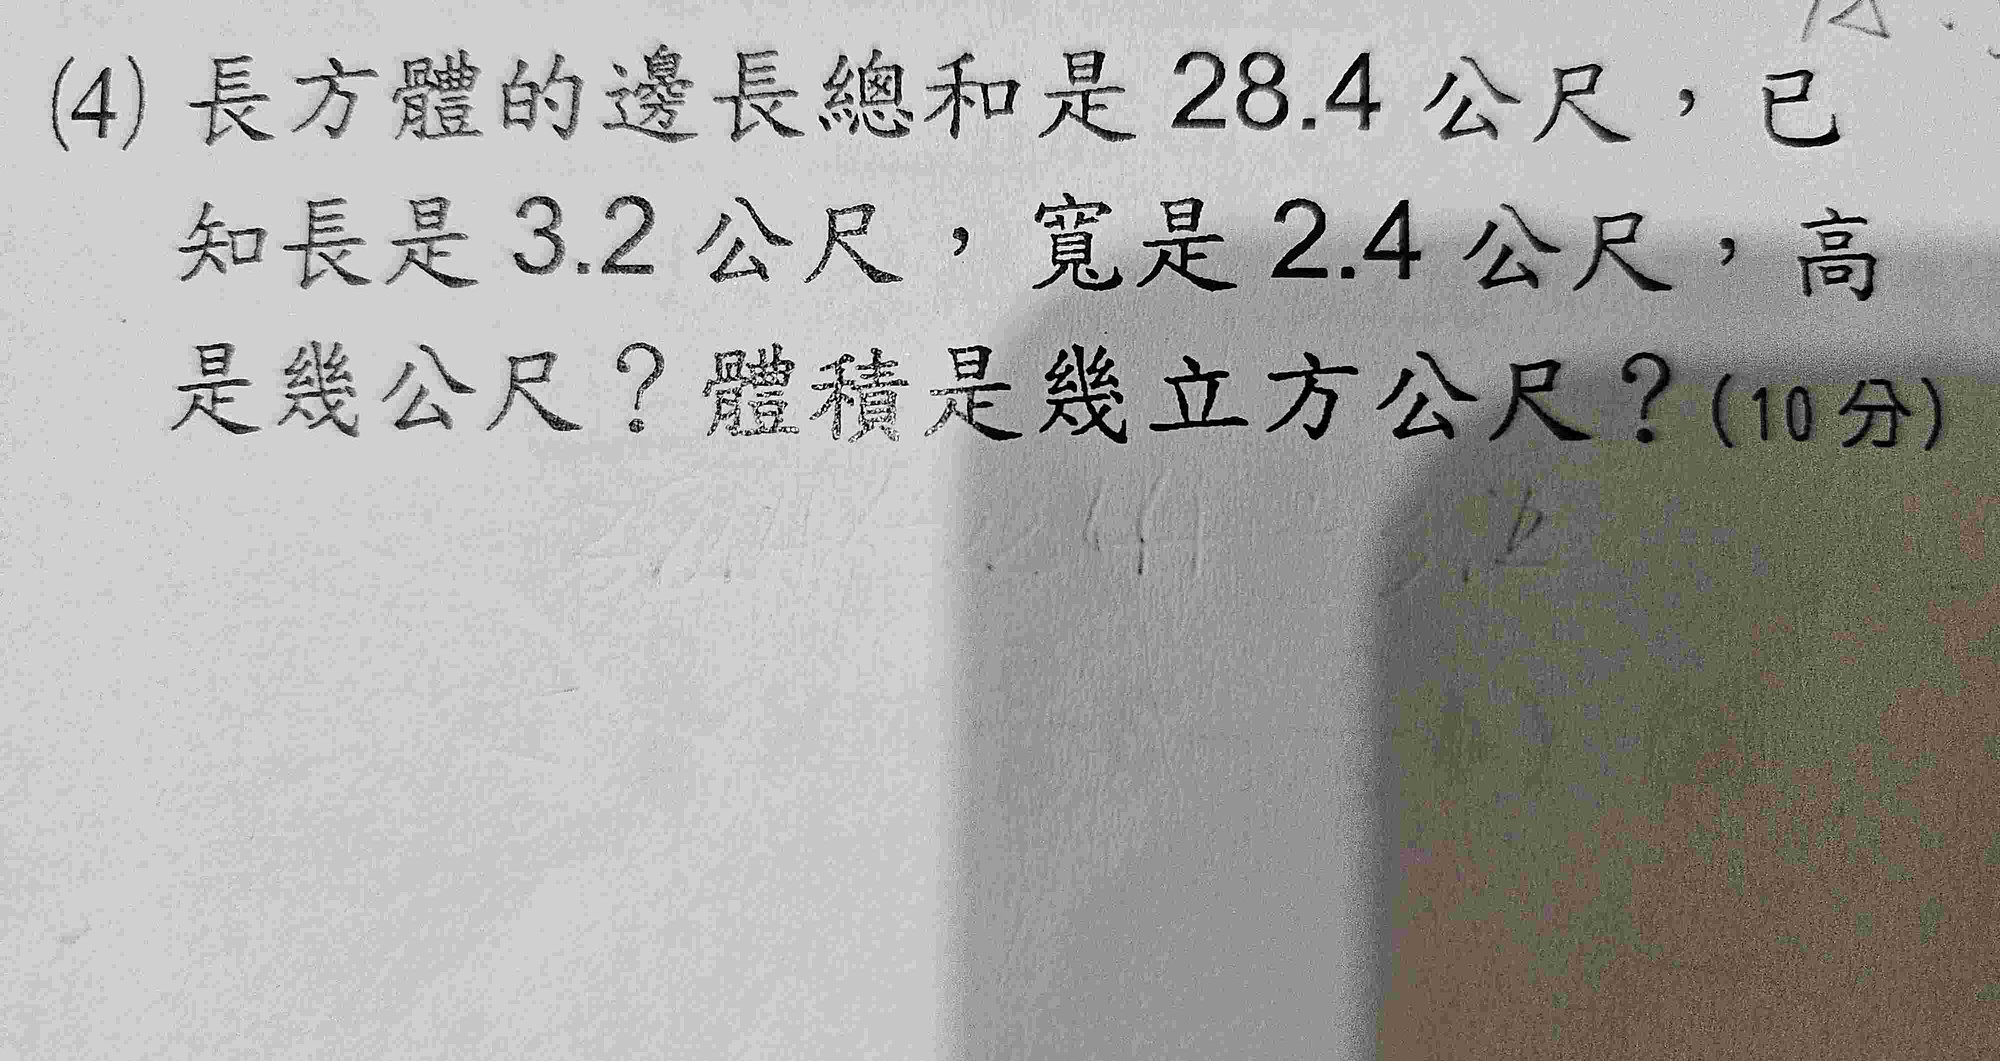 (4) 長方體的邊長總和是 28.4 公尺，已
知長是 3.2 公尺，寬是 2.4 公尺，高
是幾公尺？體積是幾立方公尺？(10 分)